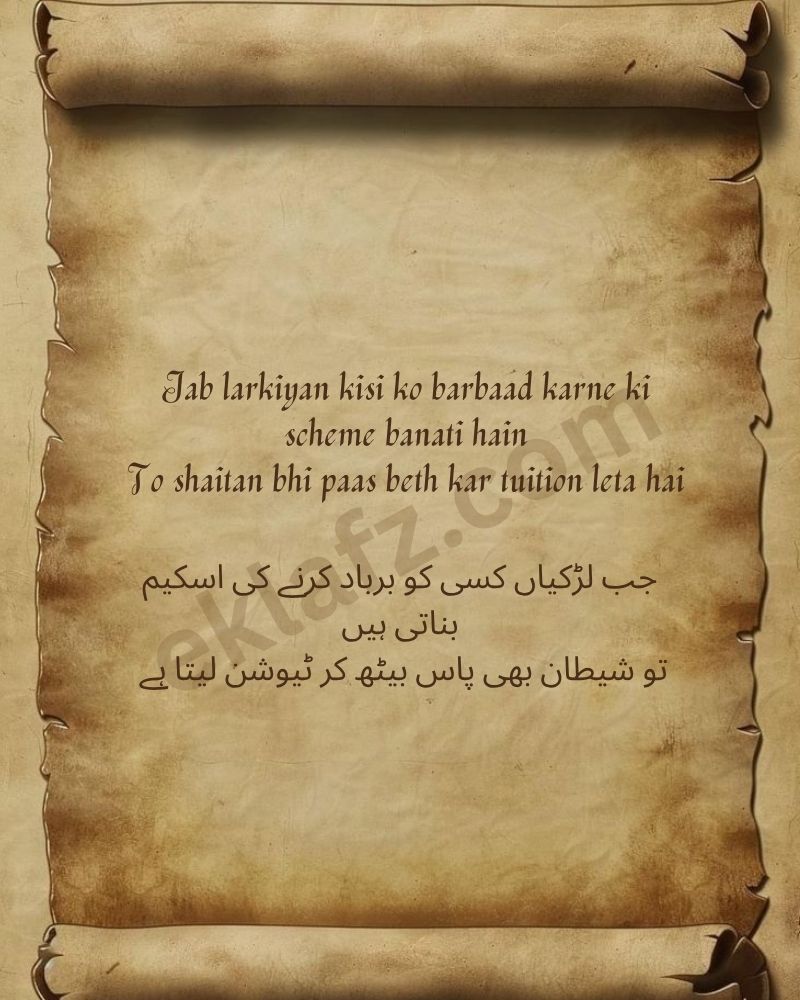 Jab larkiyan kisi ko barbaad karne ki
scheme banati hain
To shaitan bhi paas beth kar tuition leta hai
جب لڑکیاں کسی کو برباد کرنے کی اسکیم
بناتی ہیں
تو شیطان بھی پاس بیٹھ کر ٹیوشن لیتا ہے
ektafz.com